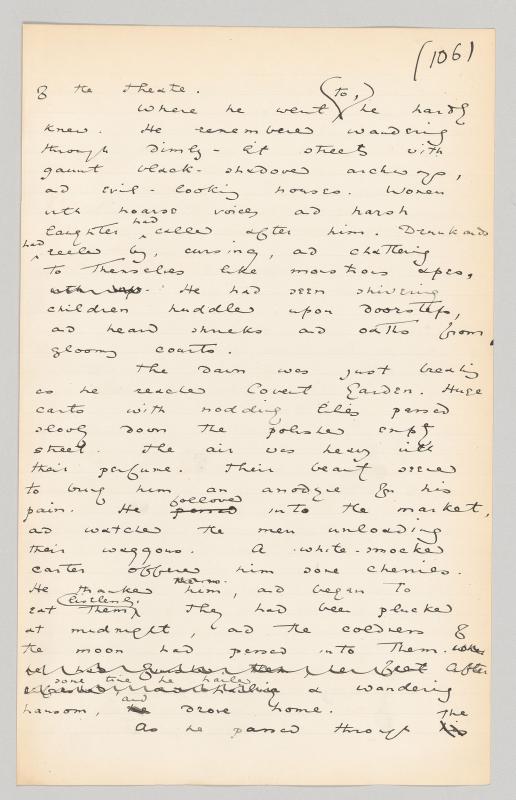 (106)
of the theatre.
Where he went to, he hardly
knew. He remembered wandering
through dimly-lit streets with
gaunt black-shadowed archways,
and evil-looking houses. Women
with hoarse voices and harsh
laughter had called after him. Drunkards
had reeled by, cursing, and chattering
to themselves like monstrous apes.
He had seen shivering
children huddled upon doorsteps,
and heard shrieks and oaths from
gloomy courts.
The dawn was just breaking
as he reached Covent Garden. Huge
carts with nodding lilies passed
slowly down the polished empty
street. The air was heavy with
their perfume. Their beauty seemed
to bring him an anodyne for his
pain. He passed followed into the market,
and watched the men unloading
their waggons. A white-smocked
carter offered him some cherries.
He thanked him, and began to
eat them listlessly. They had been plucked
at midnight, and the coldness of
the moon had passed into them. When
he had finished them, After
some time he hailed a wandering
hansom, and drove home.
As he passed through his the